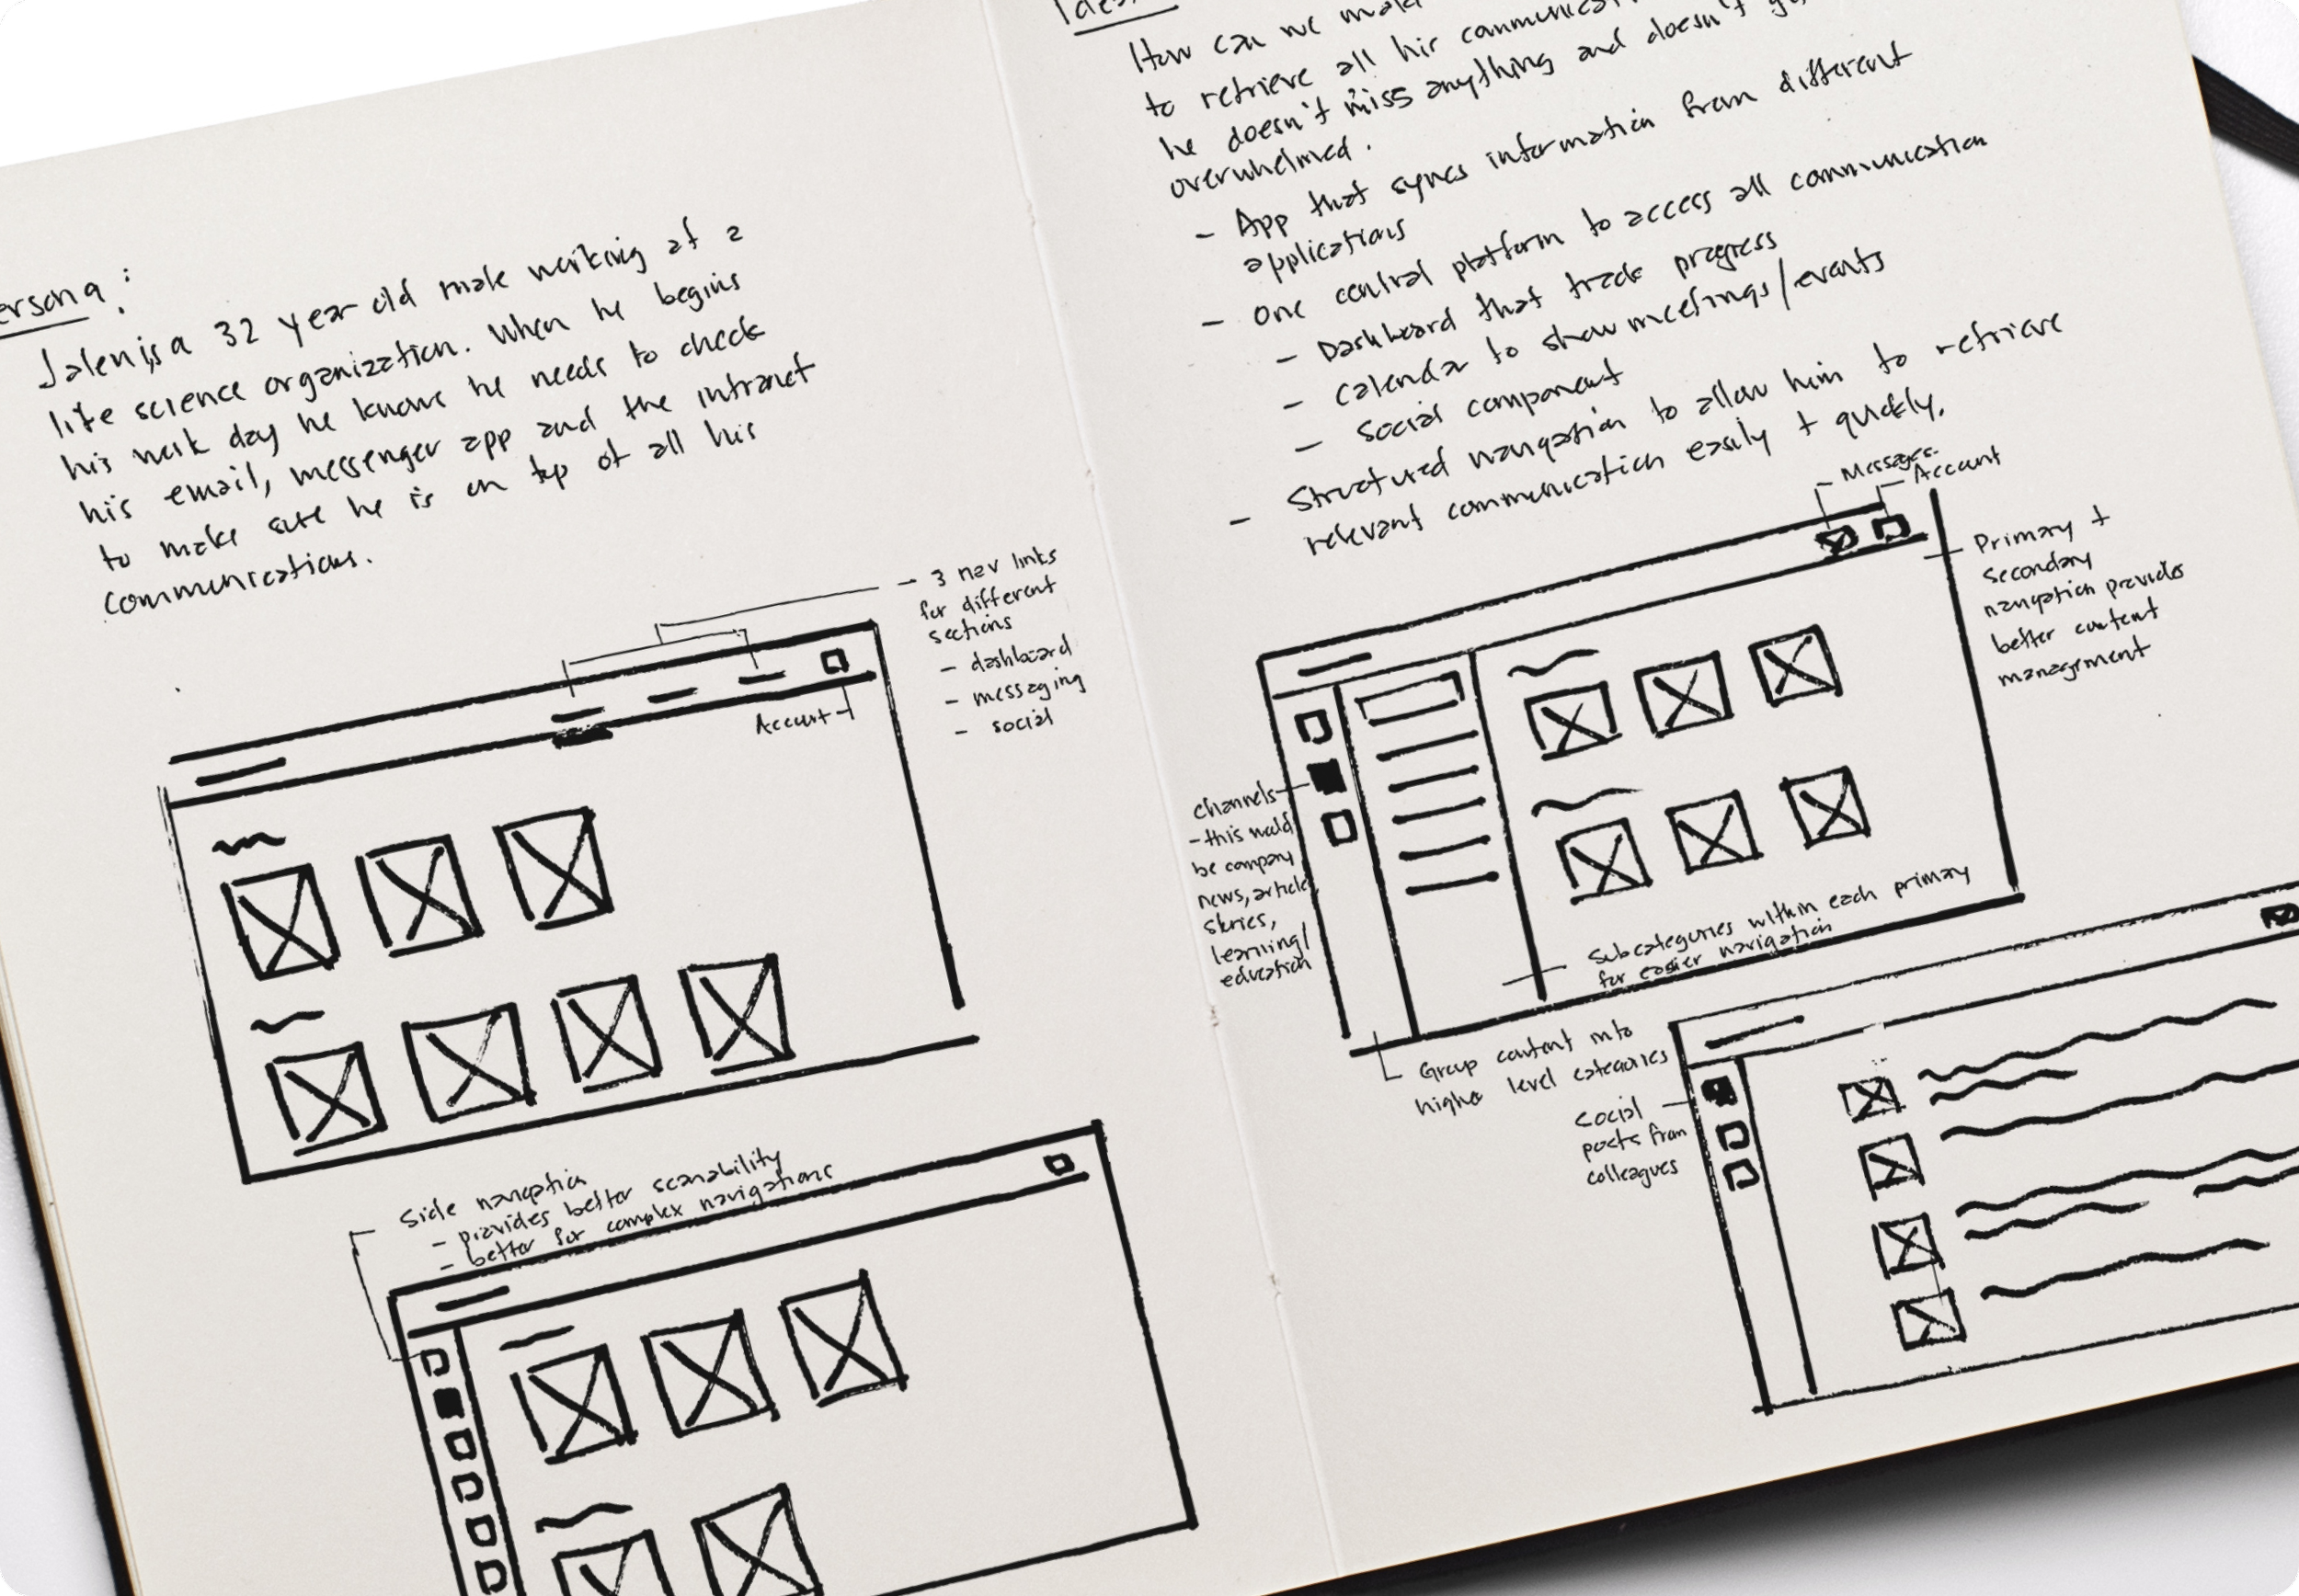 ersona:
Jalen is a 32 year old male working at a
life science organization. When he begins
his work day he knows he needs to check
his email, messenger app and the intranet
to make sure he is on top of all his
communications.
- 3 nav links
for different
sections
- dashboard
- messaging
- social
Account
Side navigation
- provides better scanability
- better for complex navigations
How can we
to retrieve all his
he doesn't miss anything and doesn't
overwhelmed.
- App that syncs information from different
applications
- One central platform to access all communication
- Dashboard that track progress
- Calendar to show meetings/events
- Social component
- Structured navigation to allow him to retrieve
relevant communication easily + quickly.
Messages
Account
Primary +
Secondary
navigation provides
better content
management
Channels
- this would
be company
news, articles,
stories,
learning/
education
Subcategories within each primary
for easier navigation
Group content into
higher level categories
Social
posts from
colleagues